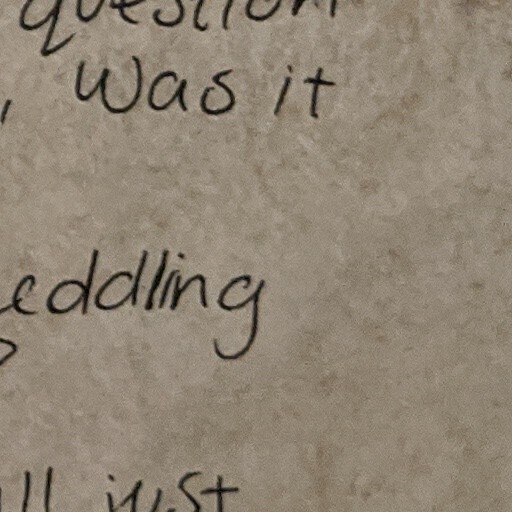 question
, was it
eddling
ll just